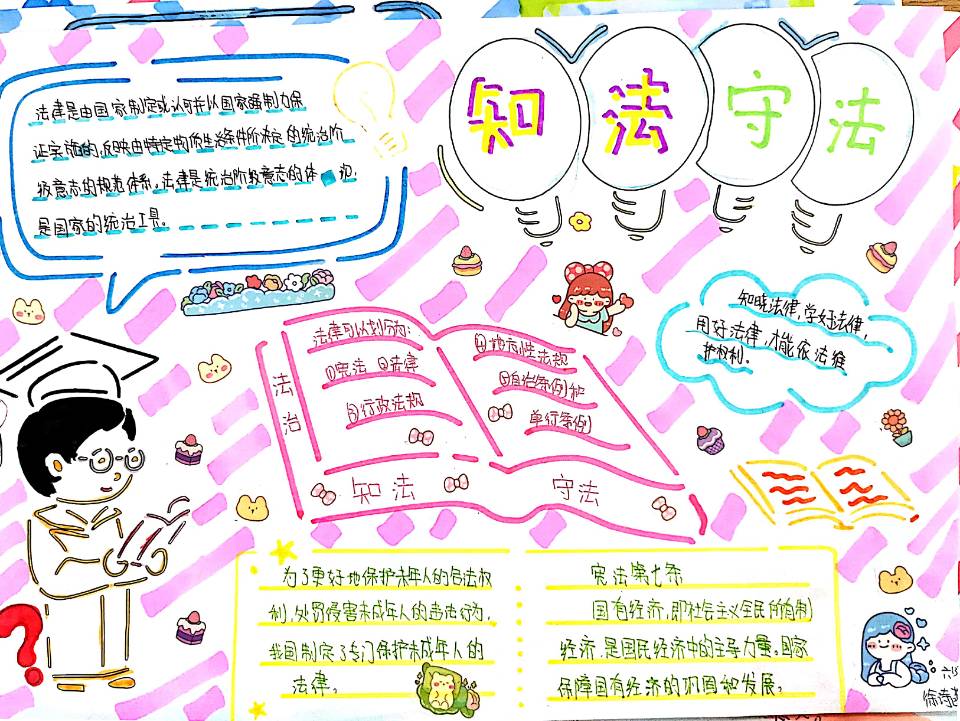 知法守法
法律是由国家制定或认可并以国家强制力保
证实施的,反映由特定物质生活条件所决定的统治阶
级意志的规范体系。法律是统治阶级意志的体现,
是国家的统治工具。
知晓法律,学好法律,
用好法律,才能依法维
护权利。
法治
法律可以划分为:
①宪法 ②法律
③行政法规
④地方性法规
⑤自治条例和
单行条例
知法 守法
为了更好地保护未成年人的合法权
利,处罚侵害未成年人的违法行为,
我国制定了专门保护未成年人的
法律。
宪法第七条
国有经济,即社会主义全民所有制
经济,是国民经济中的主导力量。国家
保障国有经济的巩固和发展。